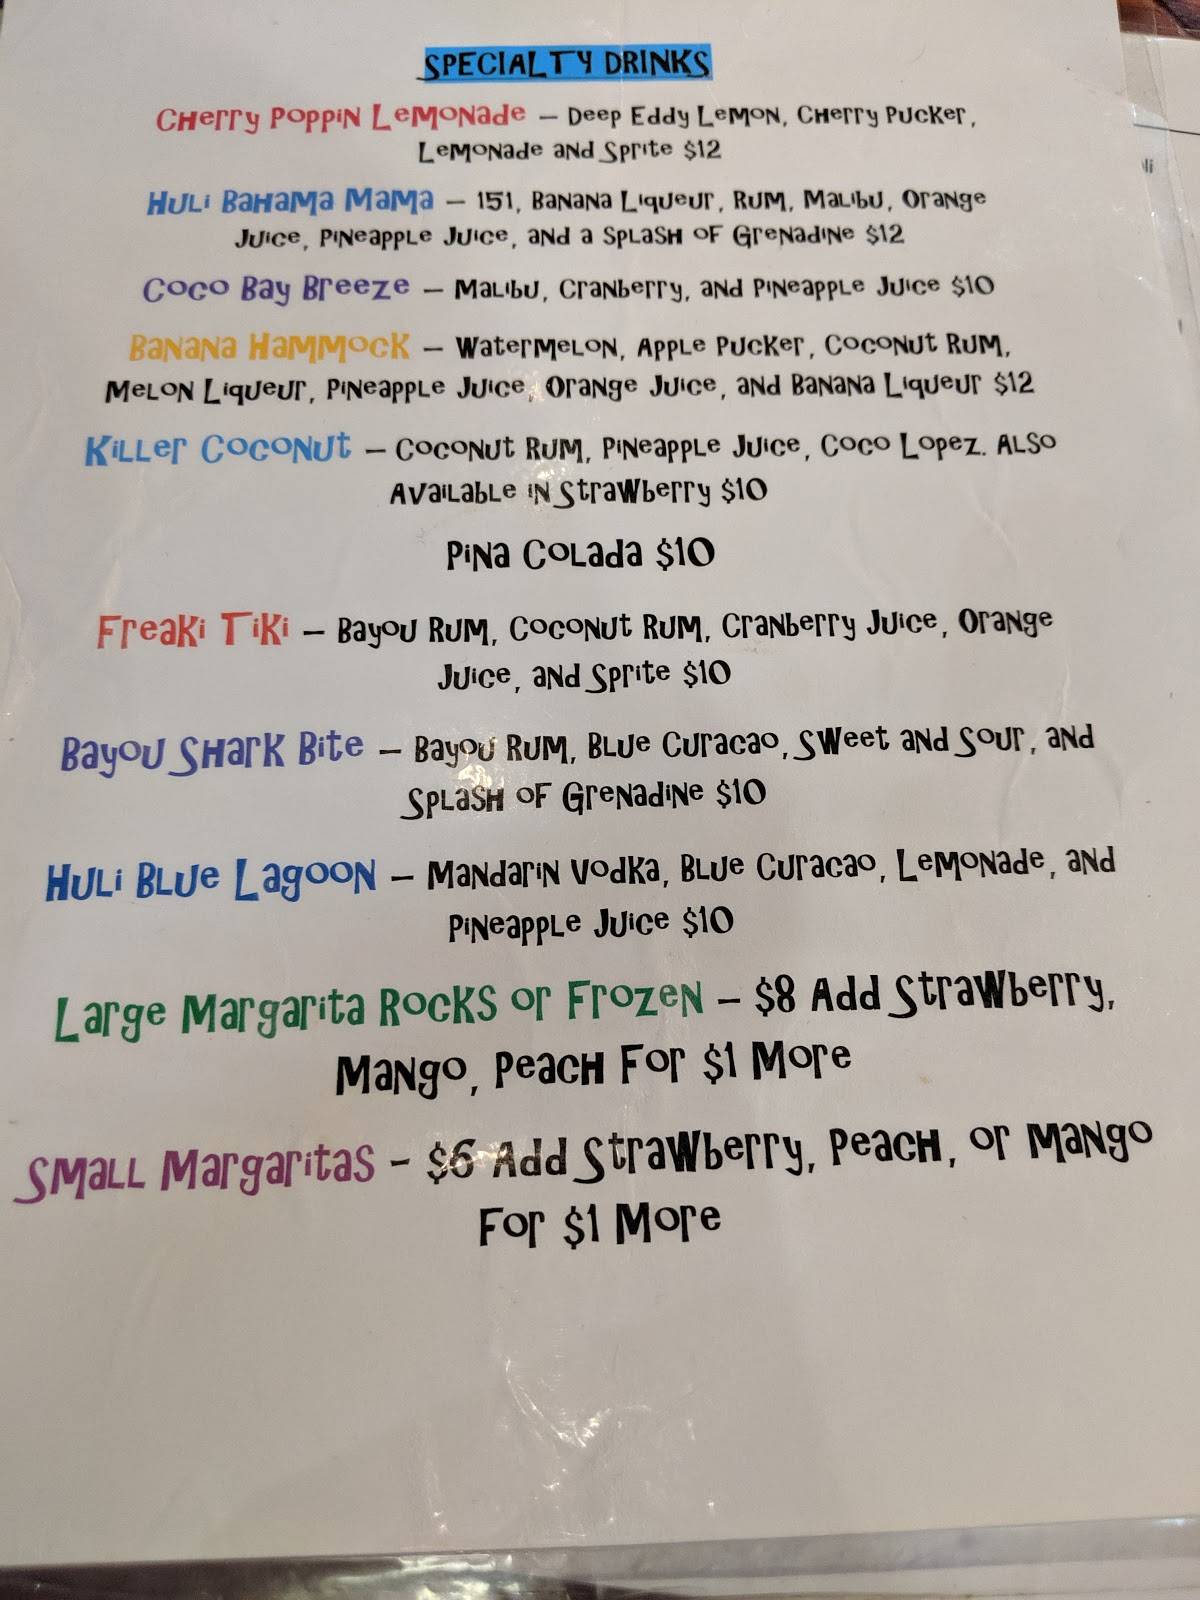 SPECIALTY DRINKS
Cherry Poppin Lemonade – Deep Eddy Lemon, Cherry Pucker,
Lemonade and Sprite $12
Huli Bahama Mama – 151, Banana Liqueur, Rum, Malibu, Orange
Juice, Pineapple Juice, and a Splash of Grenadine $12
Coco Bay Breeze – Malibu, Cranberry, and Pineapple Juice $10
Banana Hammock – Watermelon, Apple Pucker, Coconut Rum,
Melon Liqueur, Pineapple Juice, Orange Juice, and Banana Liqueur $12
Killer Coconut – Coconut Rum, Pineapple Juice, Coco Lopez. Also
Available in Strawberry $10
Pina Colada $10
Freaki Tiki – Bayou Rum, Coconut Rum, Cranberry Juice, Orange
Juice, and Sprite $10
Bayou Shark Bite – Bayou Rum, Blue Curacao, Sweet and Sour, and
Splash of Grenadine $10
Huli Blue Lagoon – Mandarin Vodka, Blue Curacao, Lemonade, and
Pineapple Juice $10
Large Margarita Rocks or Frozen – $8 Add Strawberry,
Mango, Peach For $1 More
Small Margaritas - $6 Add Strawberry, Peach, or Mango
For $1 More